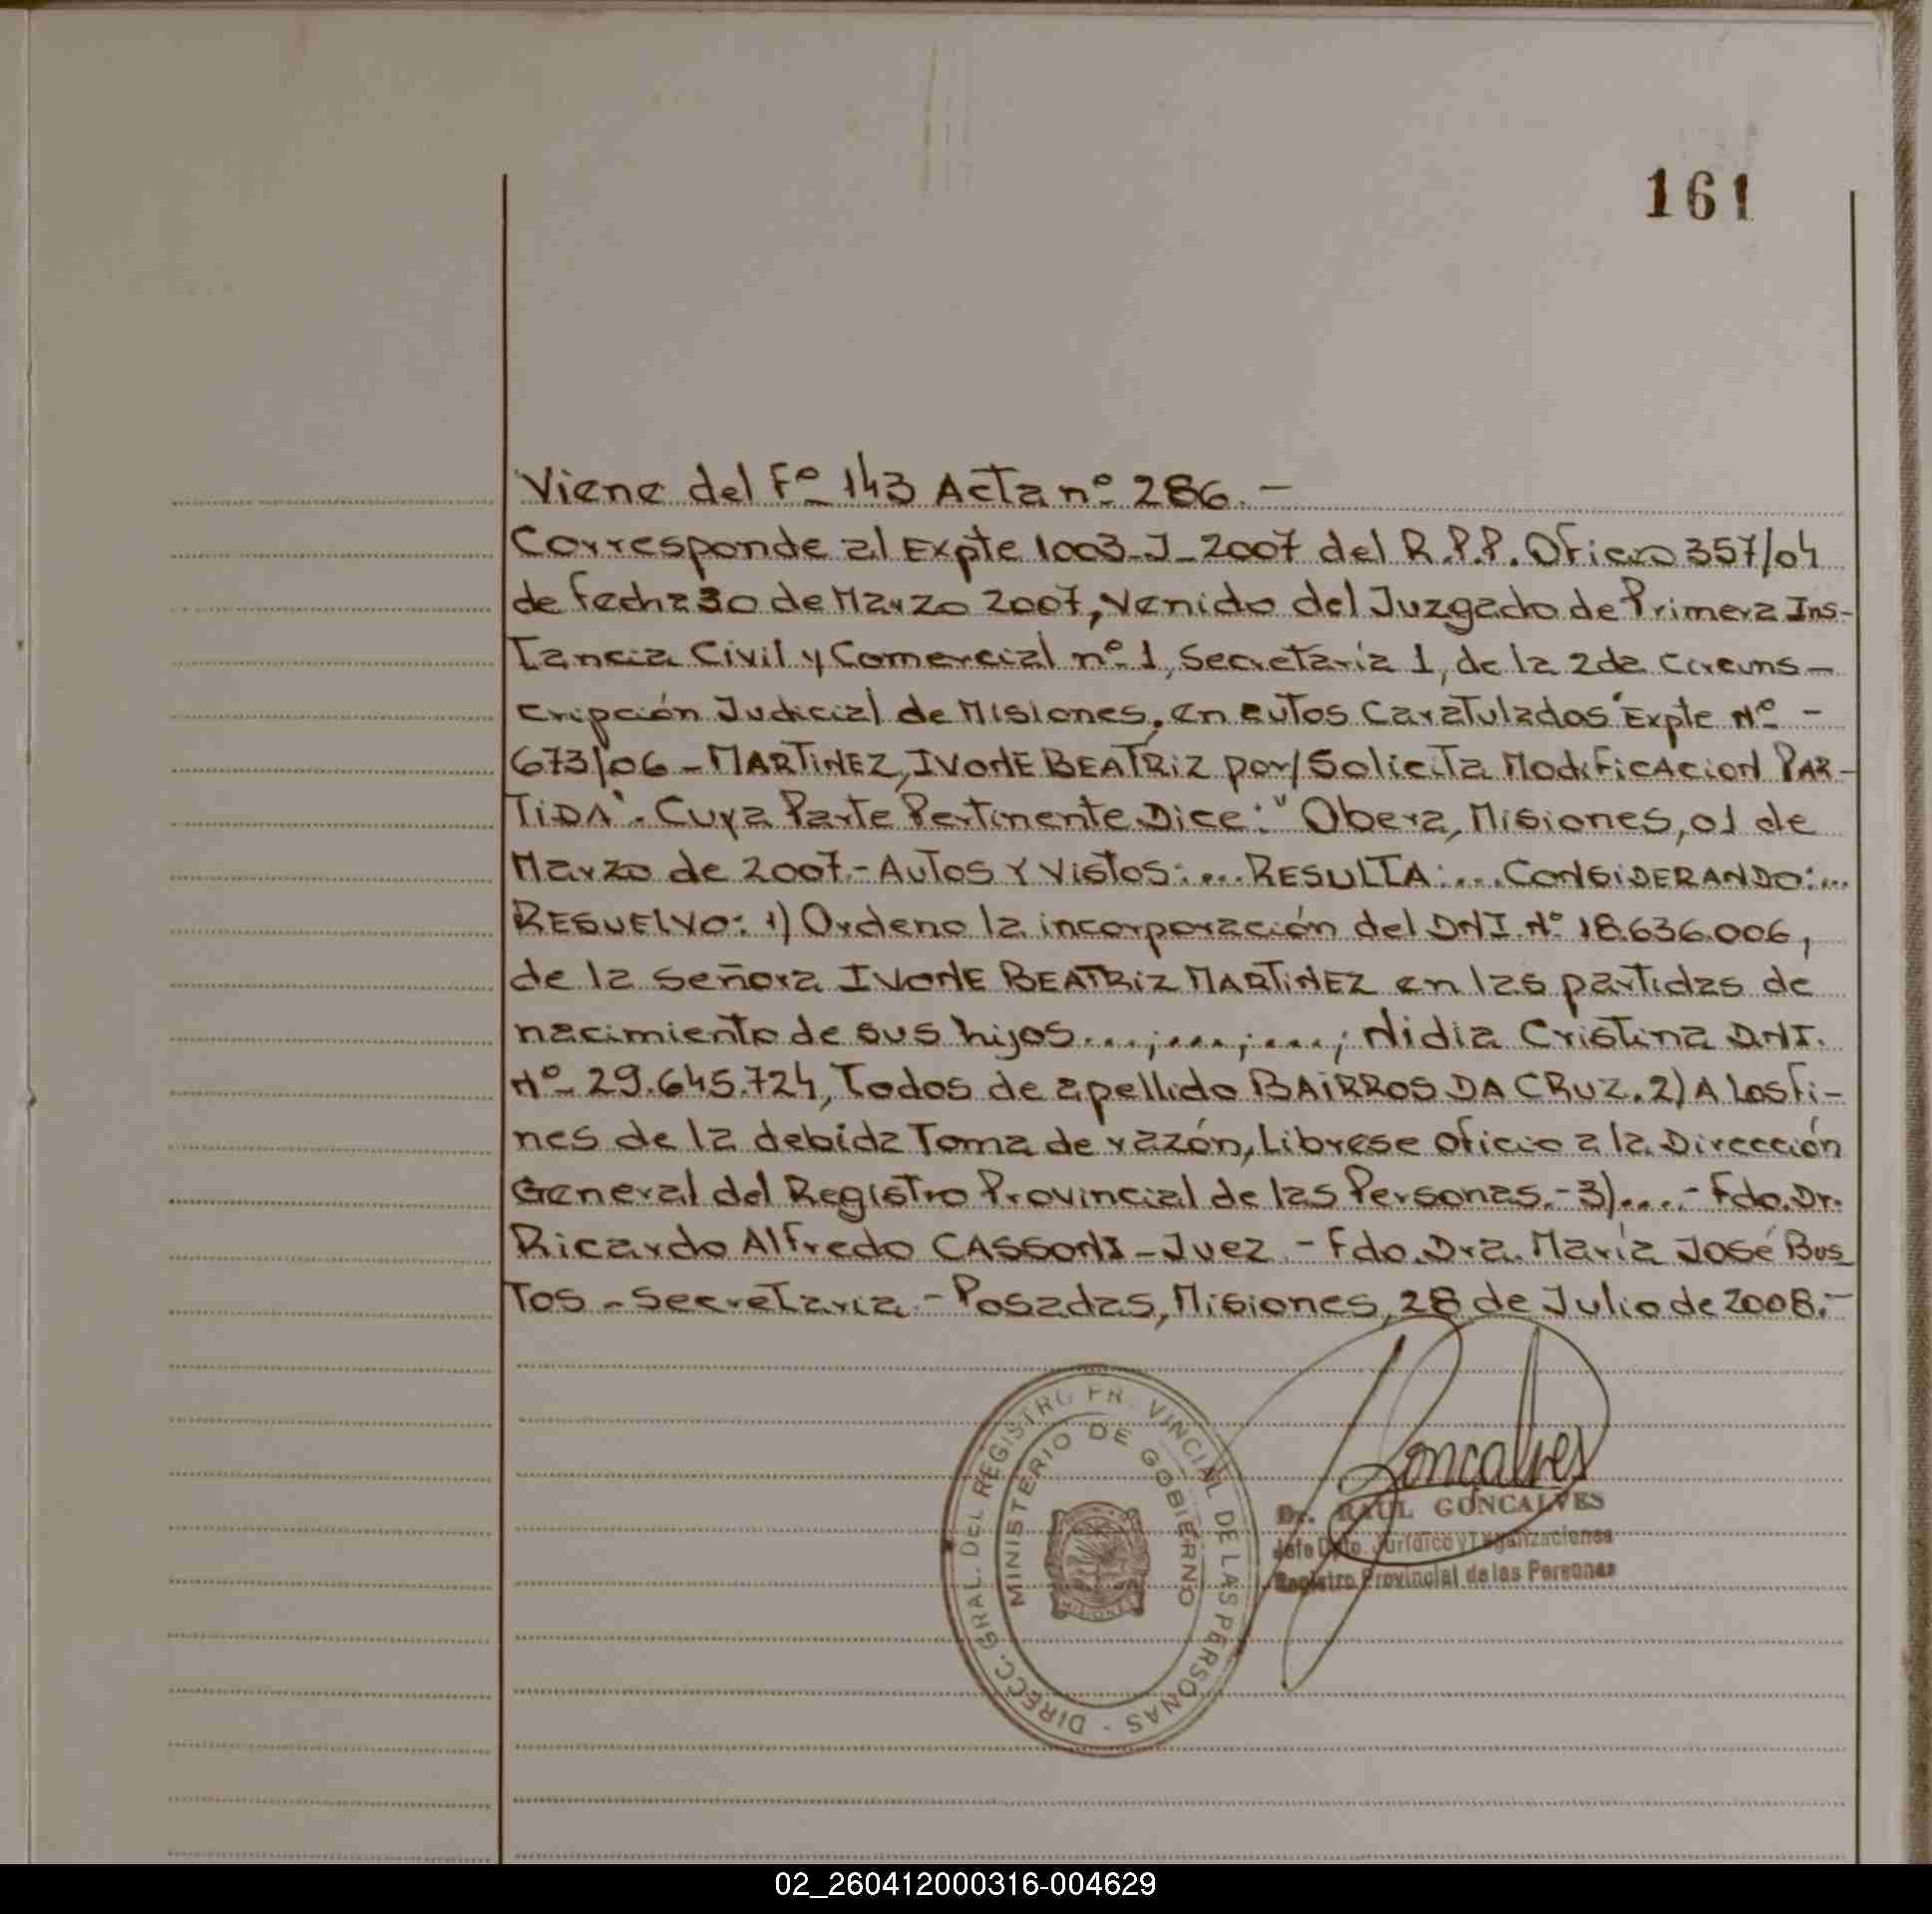 161
Viene del Fº 143 Acta nº 286.-
Corresponde al Expte 1003-J-2007 del R.P.P. Oficio 357/04
de fecha 30 de Marzo 2007, venido del Juzgado de Primera Ins-
tancia Civil y Comercial nº 1, Secretaría 1, de la 2da Circuns-
cripción Judicial de Misiones, en autos Caratulados "Expte Nº -
673/06 - MARTINEZ, IVONE BEATRIZ por/ Solicita Modificacion PAR-
TIDA". Cuya Parte Pertinente Dice: "Obera, Misiones, 01 de
Marzo de 2007.- Autos Y Vistos:... RESULTA:... CONSIDERANDO:...
RESUELVO: 1) Ordeno la incorporación del DNI Nº 18.636.006,
de la señora IVONE BEATRIZ MARTINEZ en las partidas de
nacimiento de sus hijos...;...;...; Nidia Cristina DNI.
Nº 29.645.724, Todos de apellido BAIRROS DA CRUZ. 2) A Los fi-
nes de la debida Toma de razón, Librese oficio a la Dirección
General del Registro Provincial de las Personas.- 3)....- Fdo. Dr.
Ricardo Alfredo CASSONI - Juez - Fdo. Dra. María José Bus
Tos - Secretaria - Posadas, Misiones, 28 de Julio de 2008.-
DIRECC. GRAL. DEL REGISTRO PR VINCIAL DE LAS PERSONAS -
MINISTERIO DE GOBIERNO
MISIONES
Goncalves
Dr. RAUL GONCALVES
Jefe Dpto. Jurídico y Legalizaciones
Registro Provincial de las Personas
02_260412000316-004629